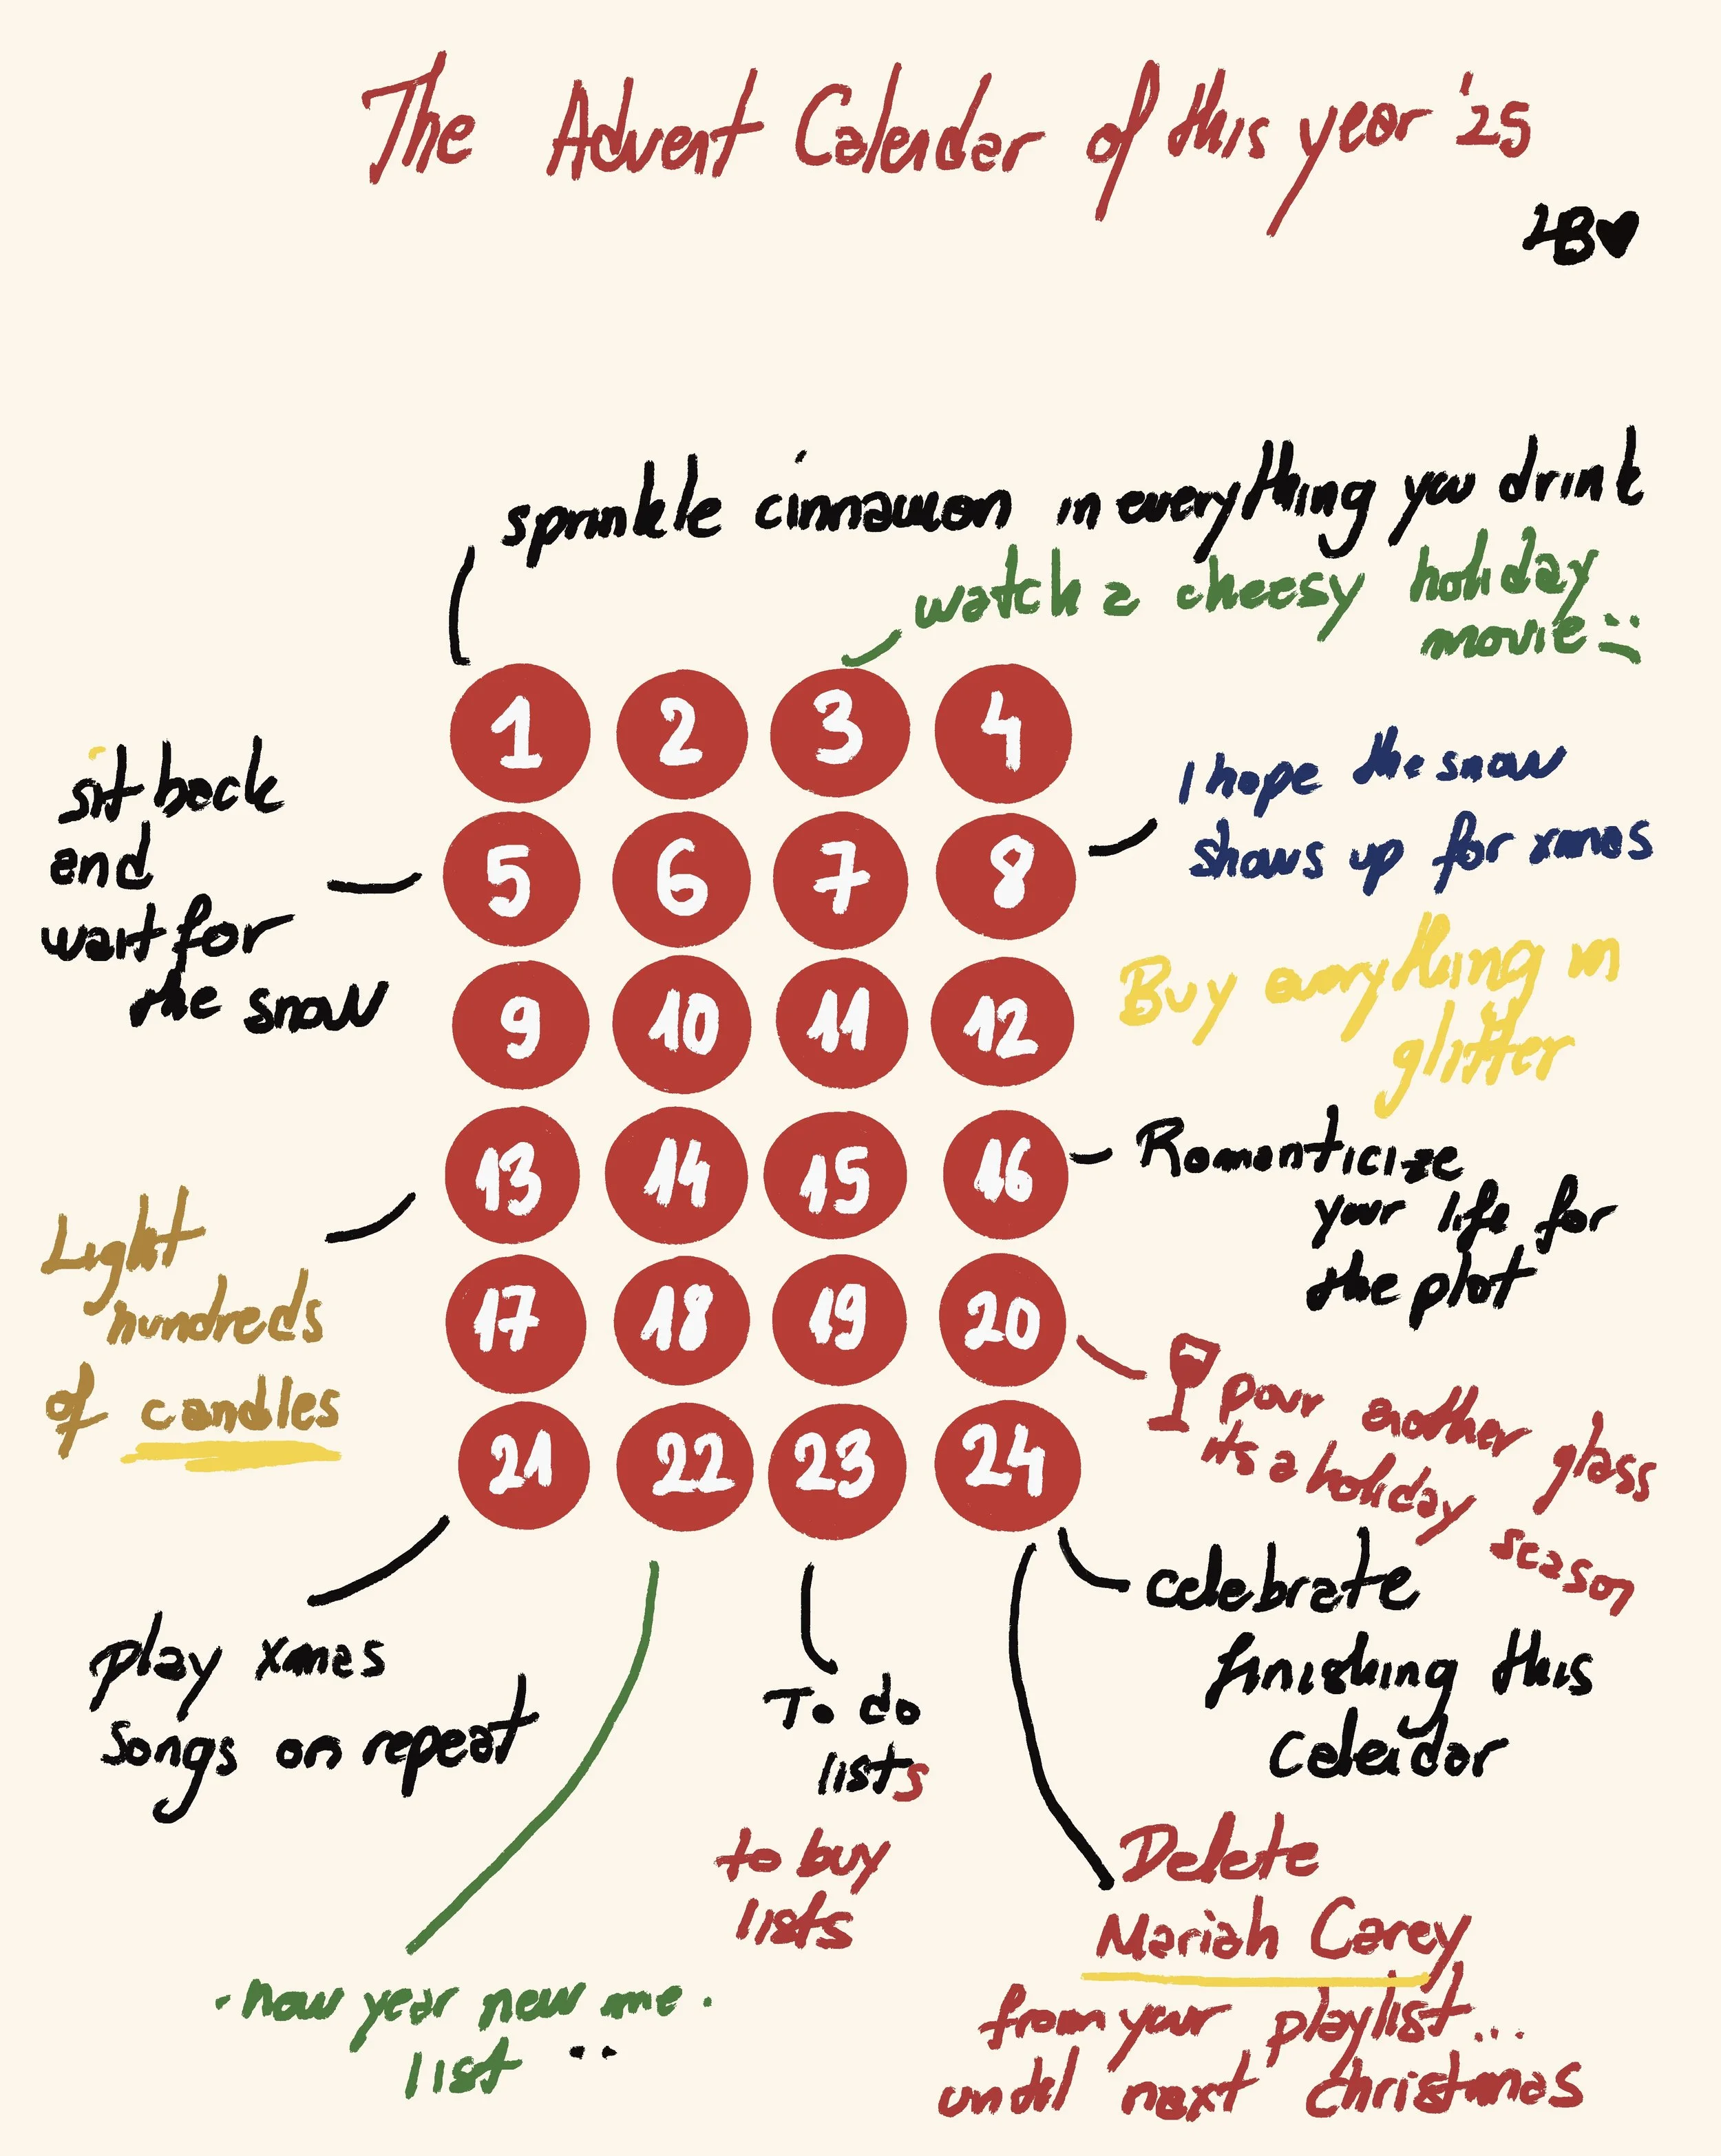 The Advent Calendar of this year '25
LB♥
sprinkle cinnamon in everything you drink
watch a cheesy holiday
movie
1 2 3 4
sit back
and
wait for
the snow
I hope the snow
shows up for xmas
5 6 7 8
Buy everything in
glitter
9 10 11 12
Romanticize
your life for
the plot
13 14 15 16
Light
hundreds
of candles
17 18 19 20
pour another glass
its a holiday
season
21 22 23 24
celebrate
finishing this
calendar
play xmas
songs on repeat
To do
lists
to buy
lists
Delete
Mariah Carey
from your playlist...
until next christmas
- new year new me.
list